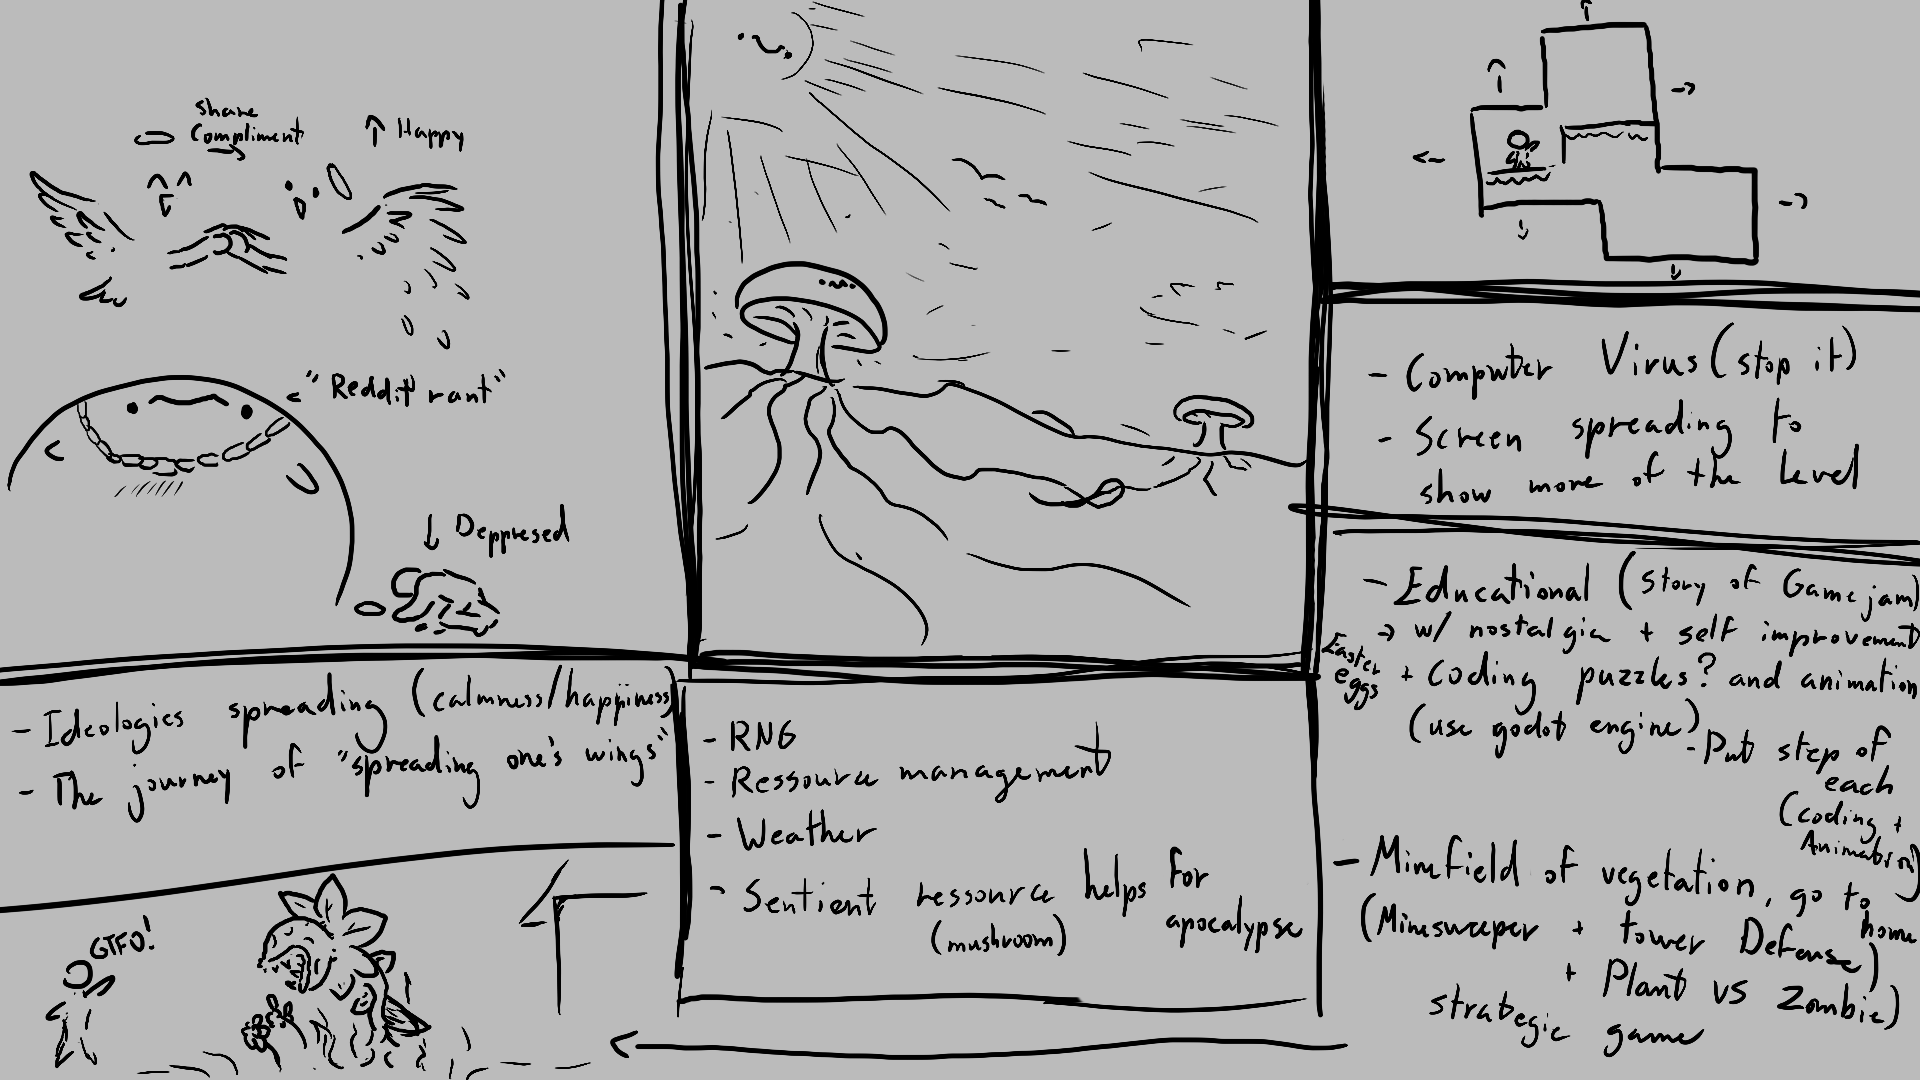 share
Compliment
Happy
"Reddit rant"
Deppresed
- Ideologies spreading (calmness/happiness)
- The journey of "spreading one's wings"
GTFO!
- RNG
- Ressource management
- Weather
- Sentient ressource helps for
(mushroom) apocalypse
- Computer Virus (stop it)
- Screen spreading to
show more of the level
- Educational (story of Gamejam)
→ w/ nostalgia + self improvement
Easter
eggs
+ Coding puzzles? and animation
(use godot engine)
- Put step of
each
(coding +
Animation)
- Minefield of vegetation, go to
home
(Minesweeper + tower Defense)
+ Plant vs Zombie)
strategic game